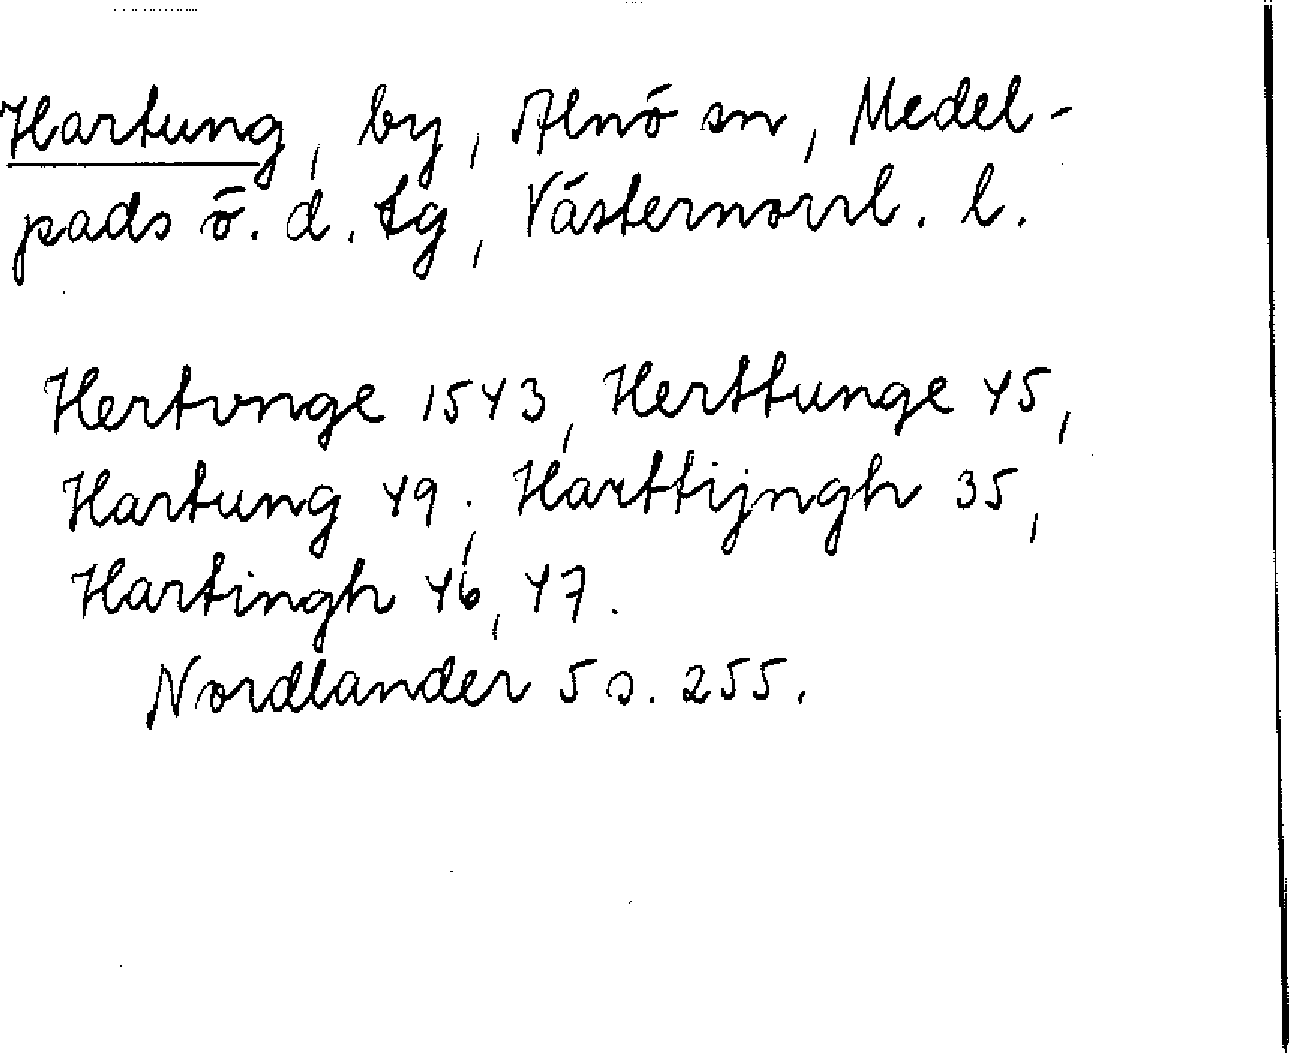 Hartung, by, Alnö sn, Medel-
pads ö. d. tg, Västernorrl. l.
Hertvnge 1543, Herttunge 45,
Hartung 49; Harttijngh 35,
Hartingh 46, 47.
Nordlander 5 s. 255.